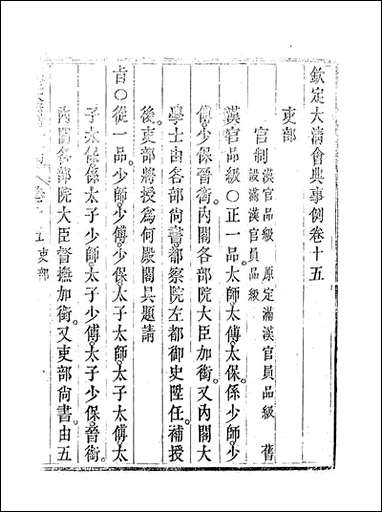 欽定大清會典事例卷十五
吏部
官制 漢官品級 原定滿漢官員品級 舊
設滿漢官員品級
漢官品級〇正一品太師太傅太保係少師少
傅少保晉銜內閣各部院大臣加銜又內閣大
學士由各部尚書都察院左都御史陞任補授
後吏部將授爲何殿閣具題請
旨〇從一品少師少傅少保太子太師太子太傅太
子太保係太子少師太子少傅太子少保晉銜
內閣各部院大臣督撫加銜又吏部尚書由五
五 吏部